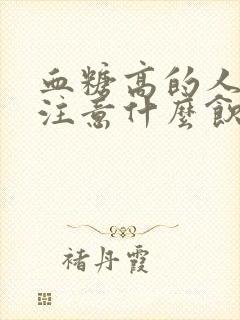 血糖高的人
注意什麼飲
褚丹霞